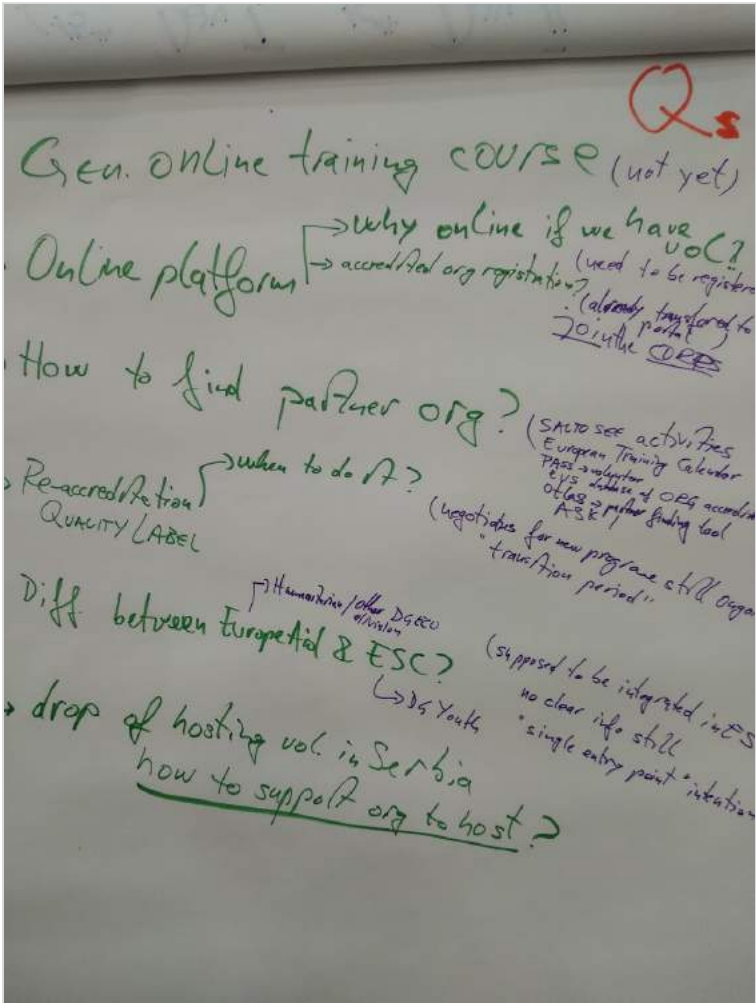 Qs
Gen. online training course (not yet)
Online platform
→ why online if we have vol?
→ accredited org registration?
(need to be registere
(already transfered to
portal)
Jointhe CORPS
How to find partner org?
(SALTO SEE activities
European Training Calendar
PASS → volunteer
EVS database of ORG accredi
Otlas → partner finding tool
ASK!
Re-accreditation
QUALITY LABEL
→ when to do it?
(negotiates for new programe still ongo
"transition period"
Diff. between EuropeAid & ESC?
→ Humanitarian/other DG ECO
division
→ DG Youth
(supposed to be integrated in ES
no clear info still
"single entry point" intention
→ drop of hosting vol. in Serbia
how to support org to host?